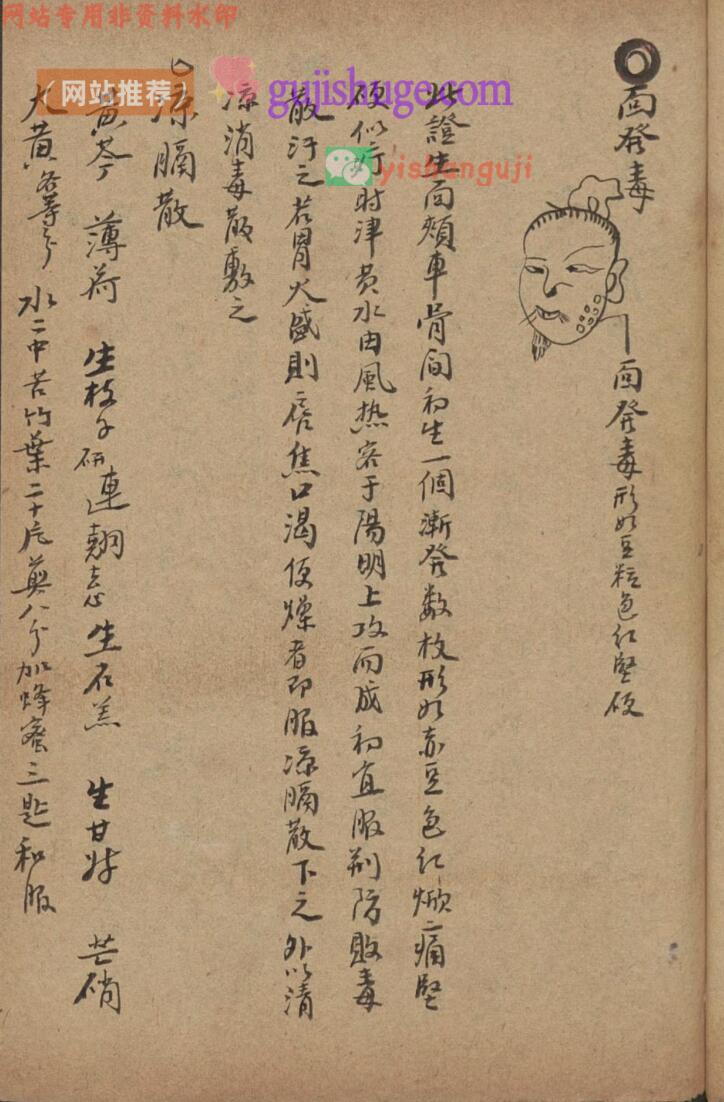 网站专用非资料水印
(网站推荐)
gujishuge.com
yishanguji
面發毒
面發毒形如豆粒色红堅硬
此證生面頰車骨間初生一個漸發数枚形如赤豆色红焮痛堅
硬似疔时津黄水由風热客于陽明上攻而成初宜服荆防敗毒
散汗之若胃火盛則唇焦口渴便燥者即服凉膈散下之外以清
凉消毒散敷之
凉膈散
黄芩 薄荷 生枝子研 連翹 生石羔 生甘 芒硝
大黄各等分 水二中苦竹葉二十片煎八分加蜂蜜三匙和服